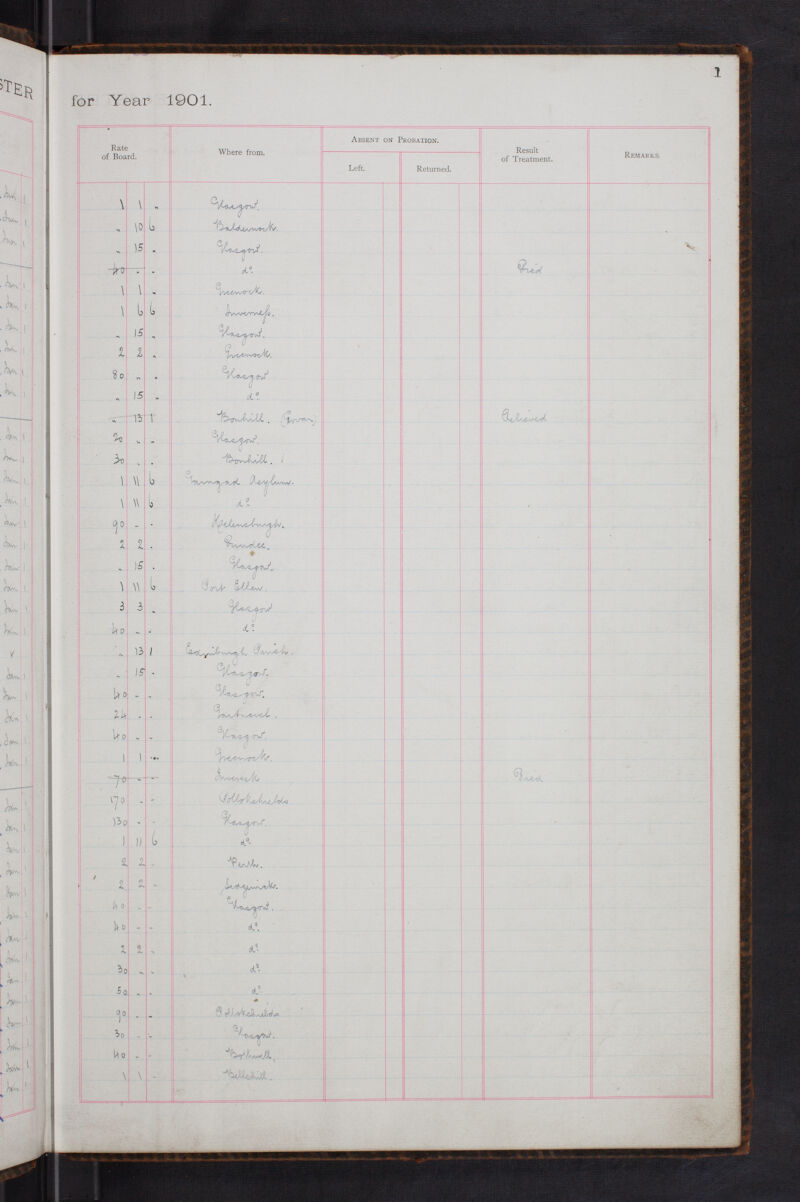 1
STER
for Year 1901.
Rate of Board. Where from. ABSENT ON PROBATION. Left. Returned. Result of Treatment. REMARKS.
1 1 „ Glasgow.
„ 10 6 Baldernock.
„ 15 „ Glasgow.
40 - - do Died
1 1 „ Greenock.
1 6 6 Inverness.
„ 15 „ Glasgow.
2 2 „ Greenock.
80 „ „ Glasgow
„ 15 „ do
„ 13 1 Bonhill. (Govan) Relieved
20 „ „ Glasgow.
30 „ „ Bonhill.
1 11 6 Garngad Asylum.
1 11 6 do
90 - - Helensburgh.
2 2 - Dundee.
„ 15 - Glasgow.
1 11 6 Port Ellen.
3 3 „ Glasgow
40 - - do
„ 13 1 Edinburgh Parish.
„ 15 - Glasgow.
40 - - Glasgow.
26 - - Gartnavel.
40 - - Glasgow.
1 1 „ Greenock.
70 - - Died
170 - - Pollokshields
130 - - Glasgow.
1 11 6 do
2 2 - Perth.
2 2 -
40 - - Glasgow.
40 - - do
2 2 - do
30 - - do
50 - - do
90 - - Pollokshields
30 - - Glasgow.
40 - - Bothwell.
1 1 - Bellshill.